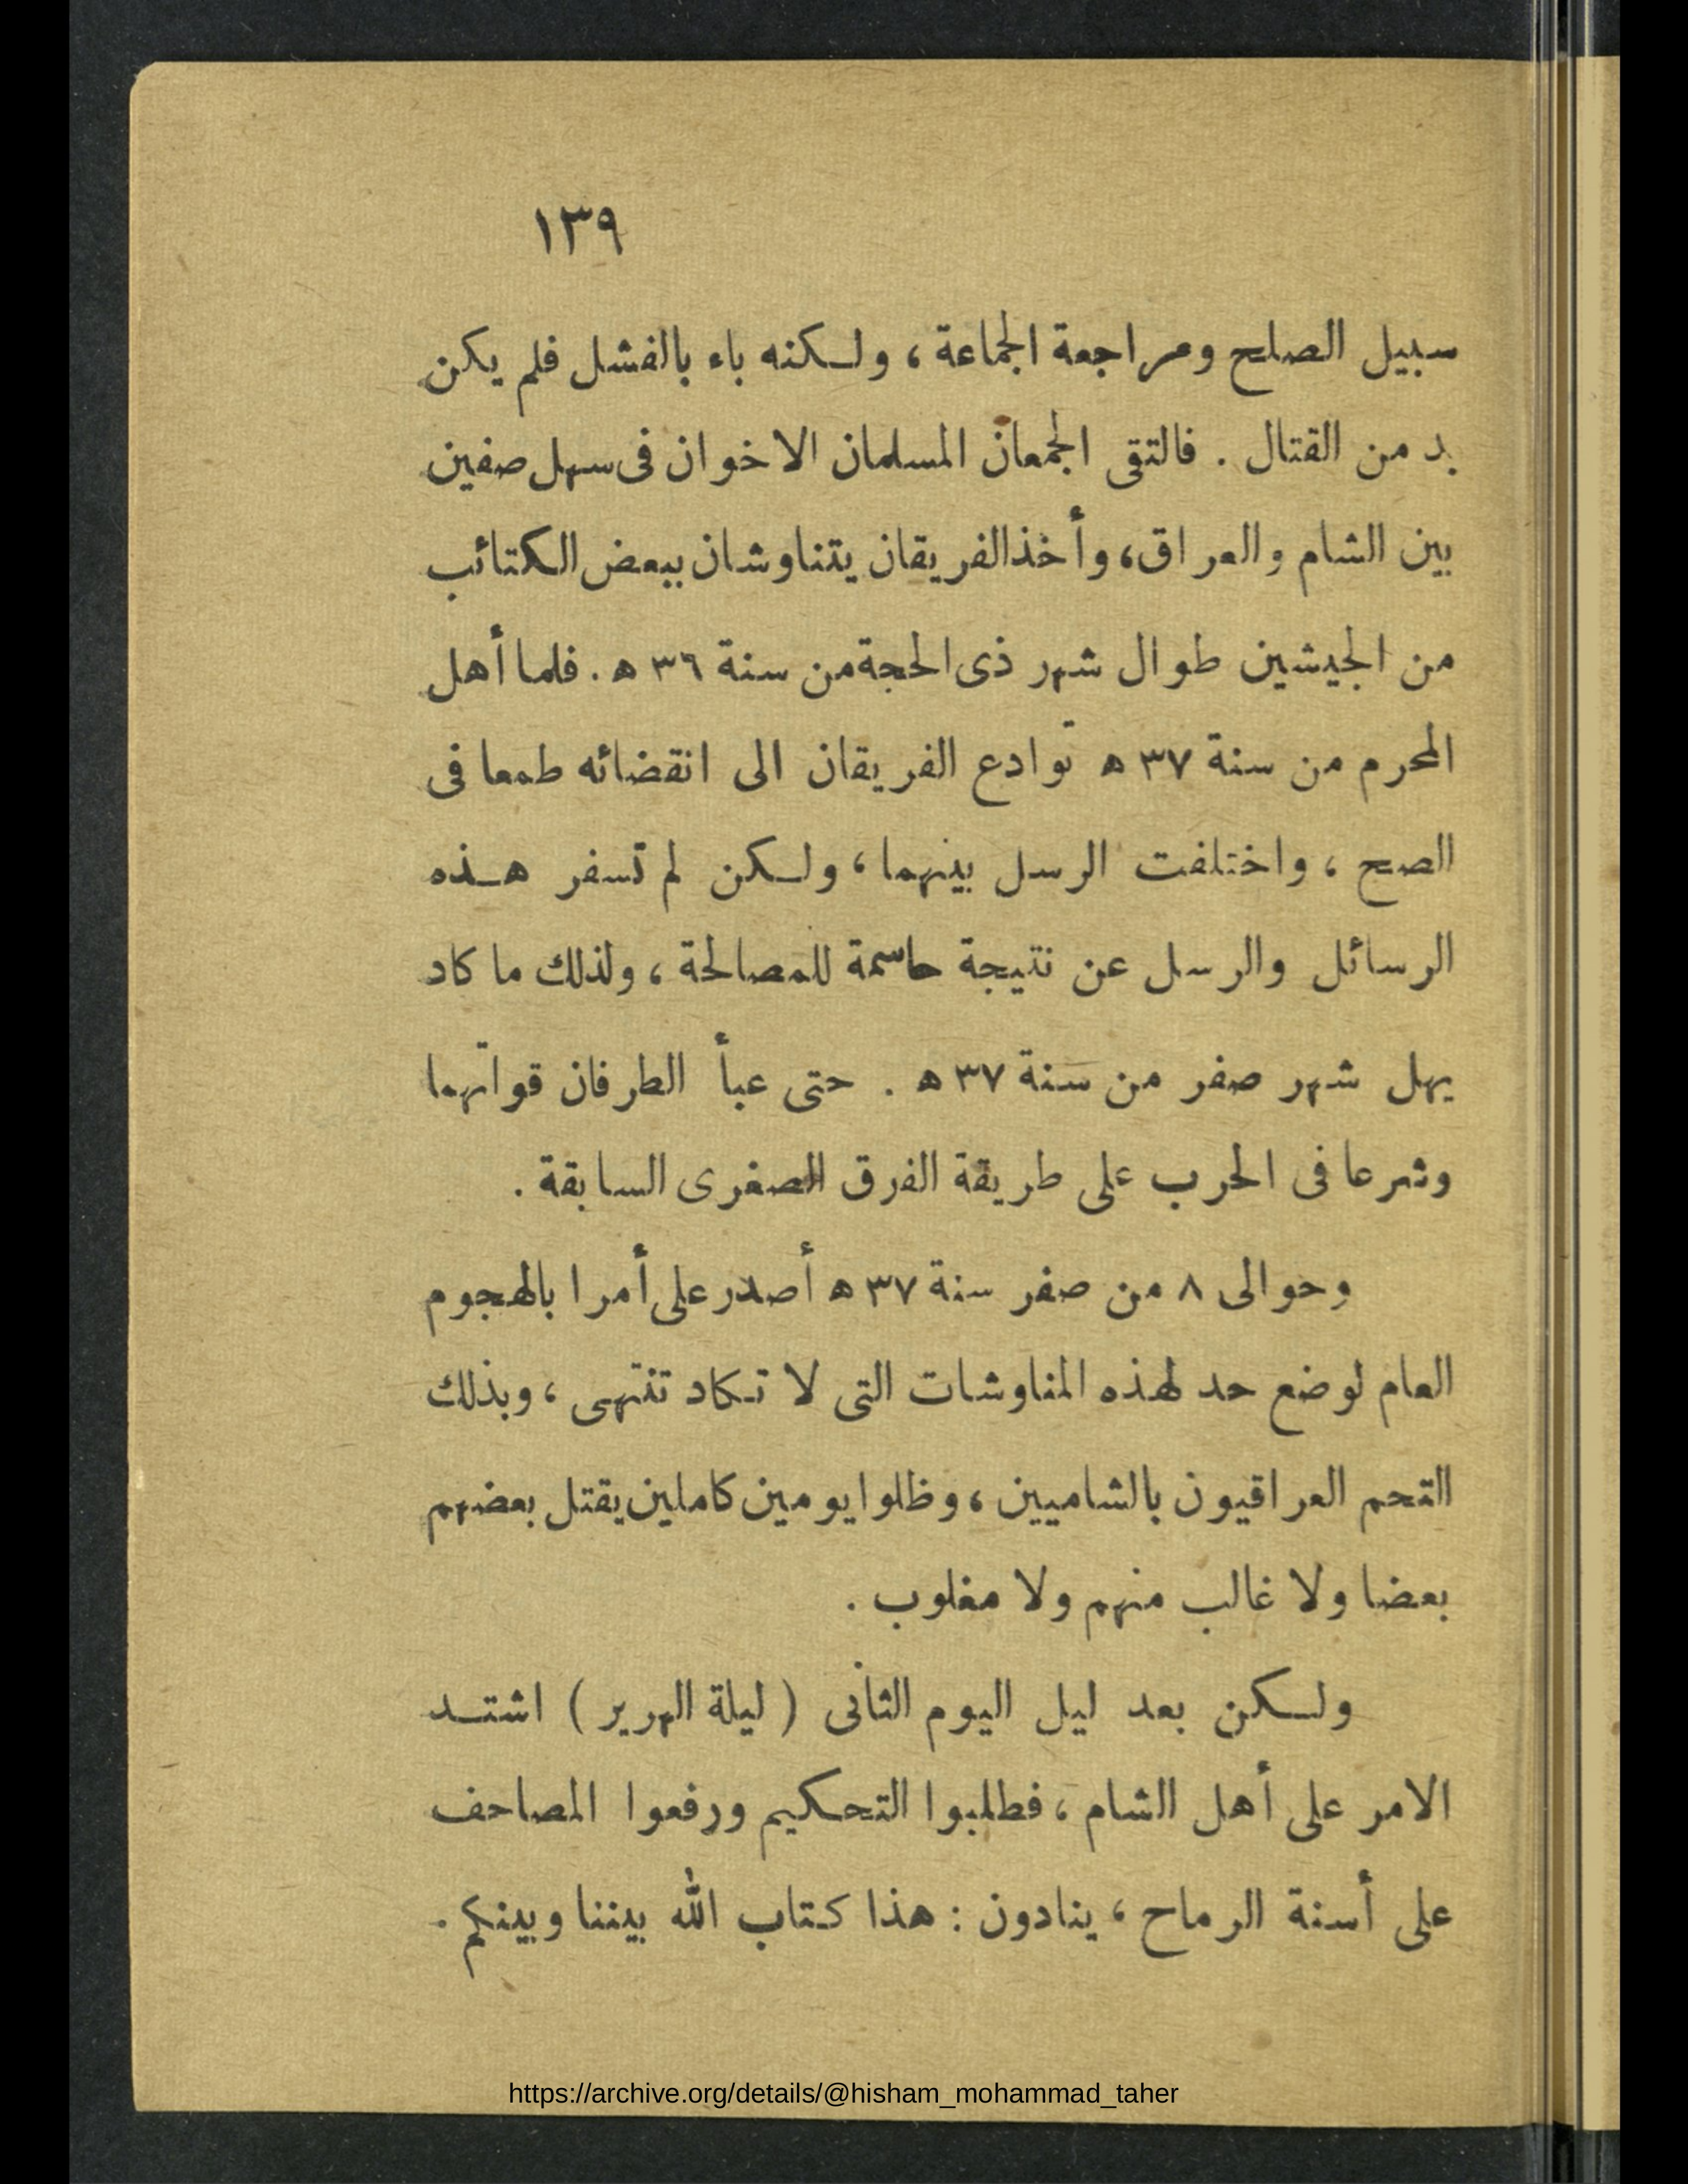 ١٣٩
سبيل الصلح ومراجعة الجماعة ، ولـكنه باء بالفشل فلم يكن
بد من القتال . فالتقى الجمعان المسلمان الاخوان فى سهل صفين
بين الشام والعراق، وأخذ الفريقان يتناوشان ببعض الكتائب
من الجيشين طوال شهر ذى الحجة من سنة ٣٦ ه . فلما أهل
المحرم من سنة ٣٧ ه توادع الفريقان الى انقضائه طمعا فى
الصح ، واختلفت الرسل بينهما ، ولـكن لم تسفر هـذه
الرسائل والرسل عن نتيجة حاسمة للمصالحة ، ولذلك ما كاد
يهل شهر صفر من سنة ٣٧ ه . حتى عبأ الطرفان قواتهما
وشرعا فى الحرب على طريقة الفرق الصغرى السابقة .
وحوالى ٨ من صفر سنة ٣٧ ه أصدر على أمرا بالهجوم
العام لوضع حد لهذه المناوشات التى لا تـكاد تنتهى ، وبذلك
التحم العراقيون بالشاميين ، وظلوا يومين كاملين يقتل بعضهم
بعضا ولا غالب منهم ولا مغلوب .
ولـكن بعد ليل اليوم الثانى ( ليلة الهرير ) اشتـد
الامر على أهل الشام ، فطلبوا التحكيم ورفعوا المصاحف
على أسنة الرماح ، ينادون : هذا كتاب الله بيننا وبينكم .
https://archive.org/details/@hisham_mohammad_taher